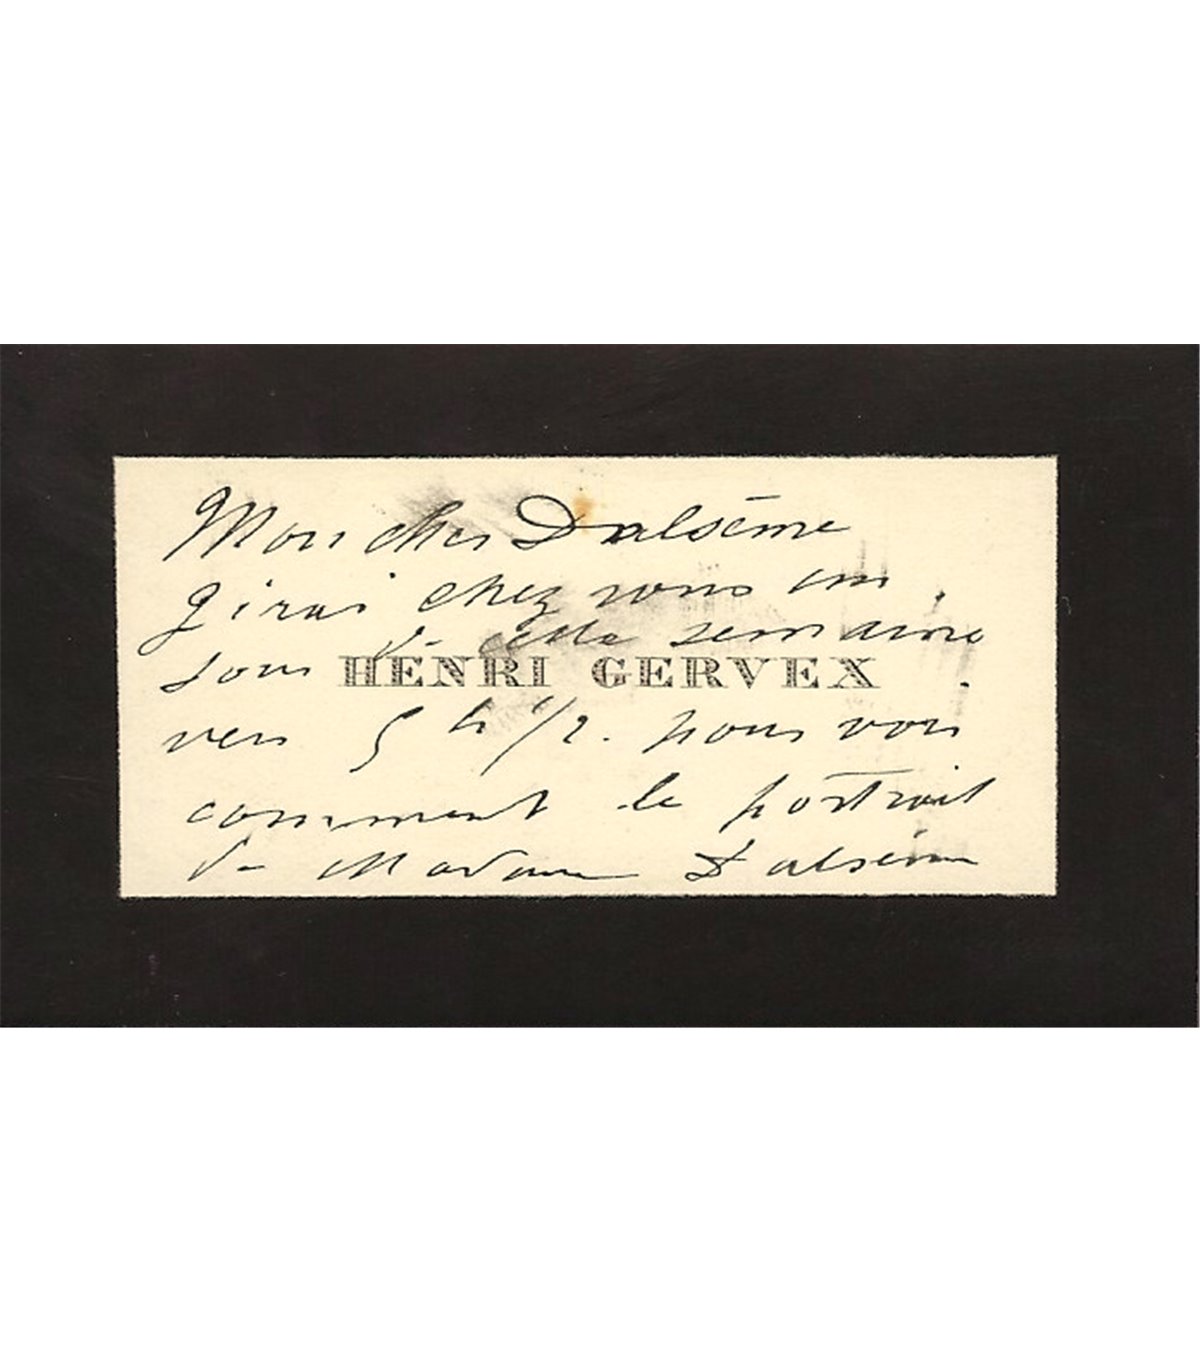 Mon cher Dalsème
J'irai chez vous un
jour de cette semaine
HENRI GERVEX
vers 5 h 1/2. pour voir
comment le portrait
de Madame Dalsème